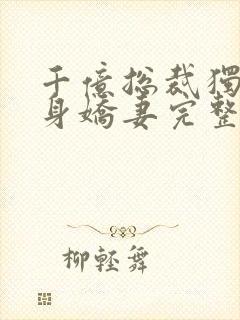 千億総裁獨
身嬌妻完整
柳輕舞